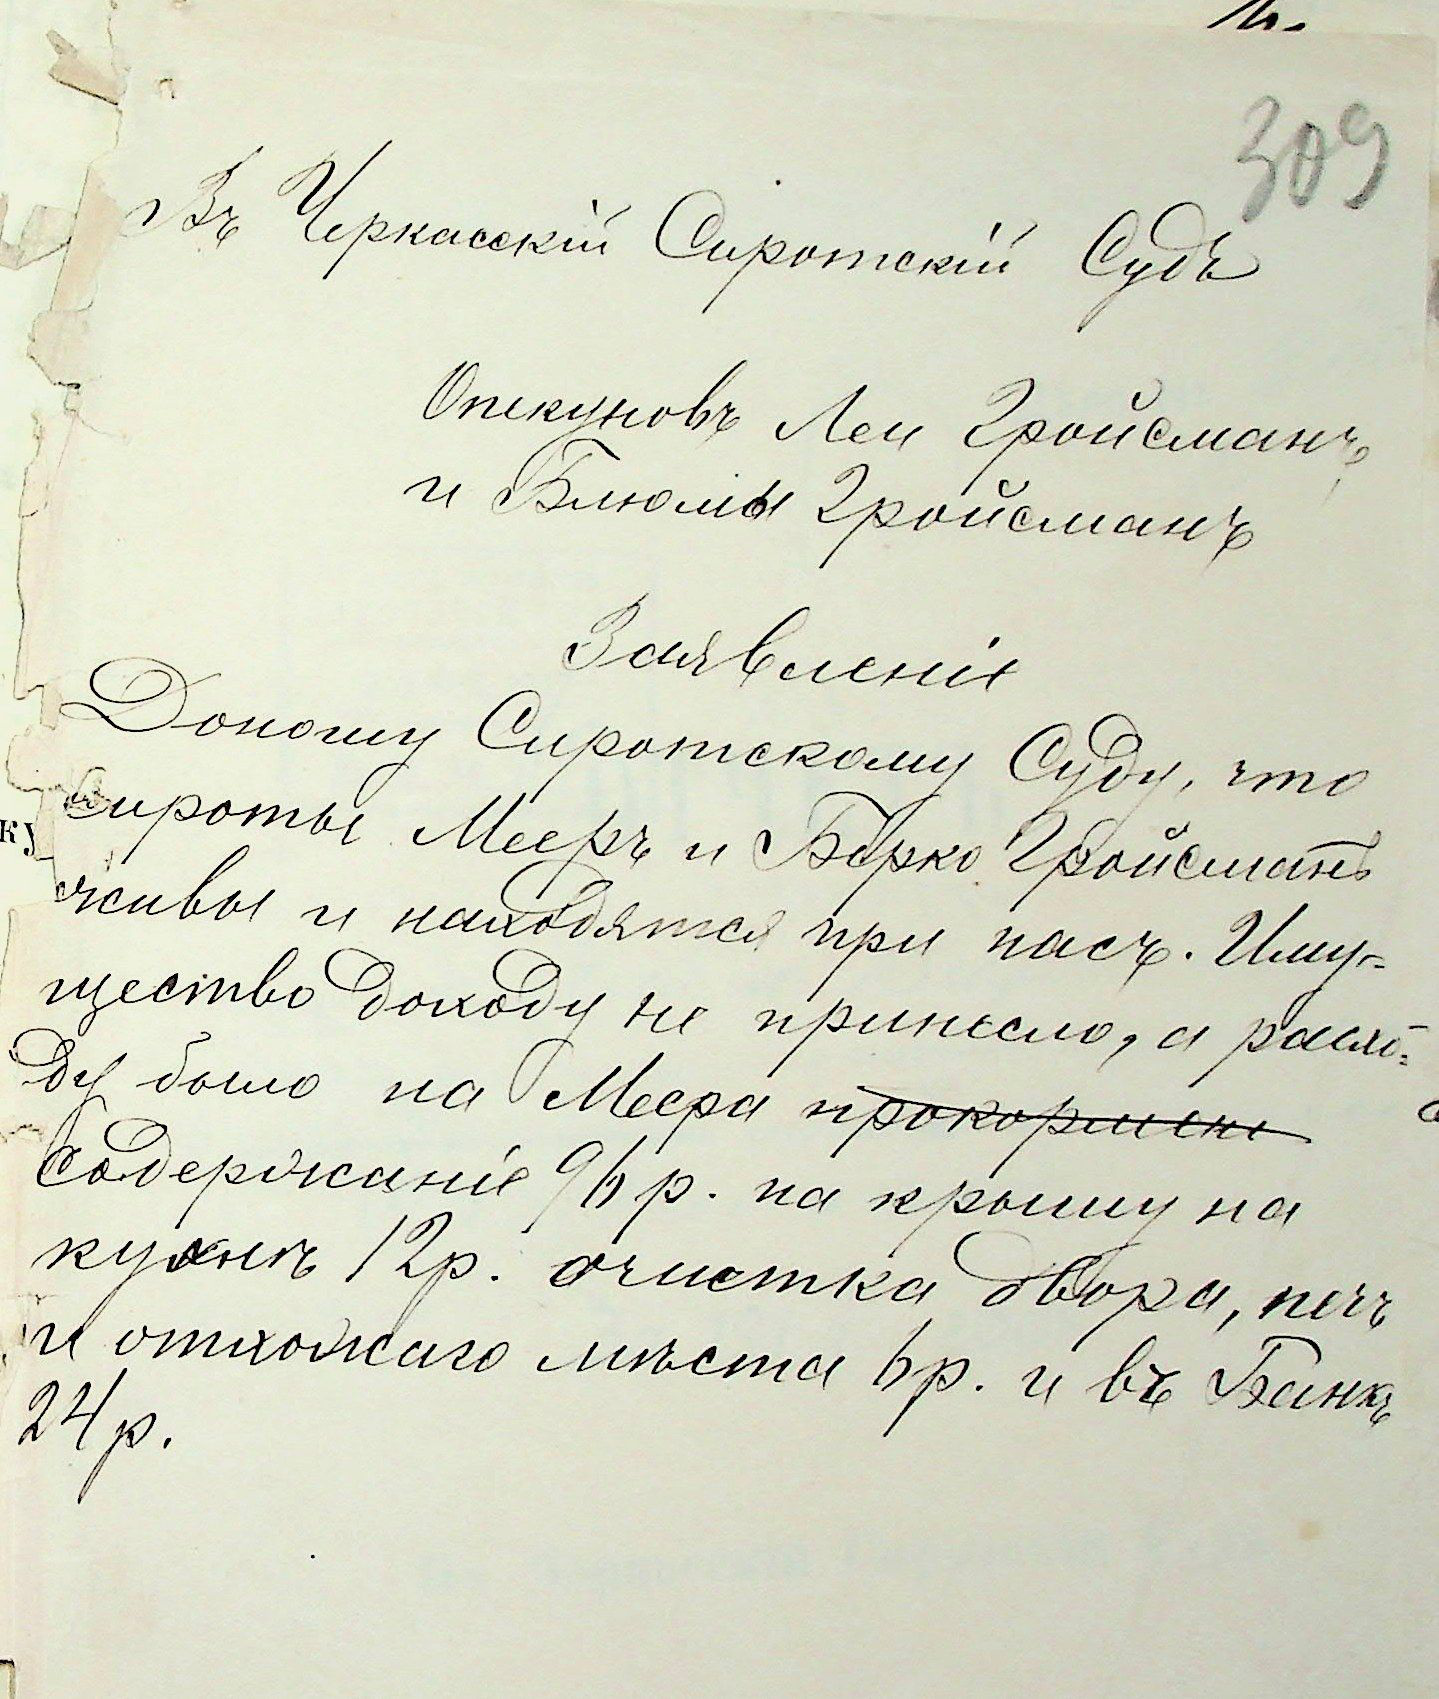 309
Въ Черкасскій Сиротскій Судъ
Опекуновъ Леи Гройсманъ
и Блюмы Гройсманъ
Заявленіе
Доношу Сиротскому Суду, что
сироты Мееръ и Берко Гройсманъ
живы и находятся при насъ. Иму-
щество доходу не принесло, а расхо-
ду было на Меера прокормленіе
содержаніе 96 р. на крышу на
кухнѣ 12 р. очистка двора, печь
и отхожаго мѣста 6 р. и въ Банкъ
24 р.
ку